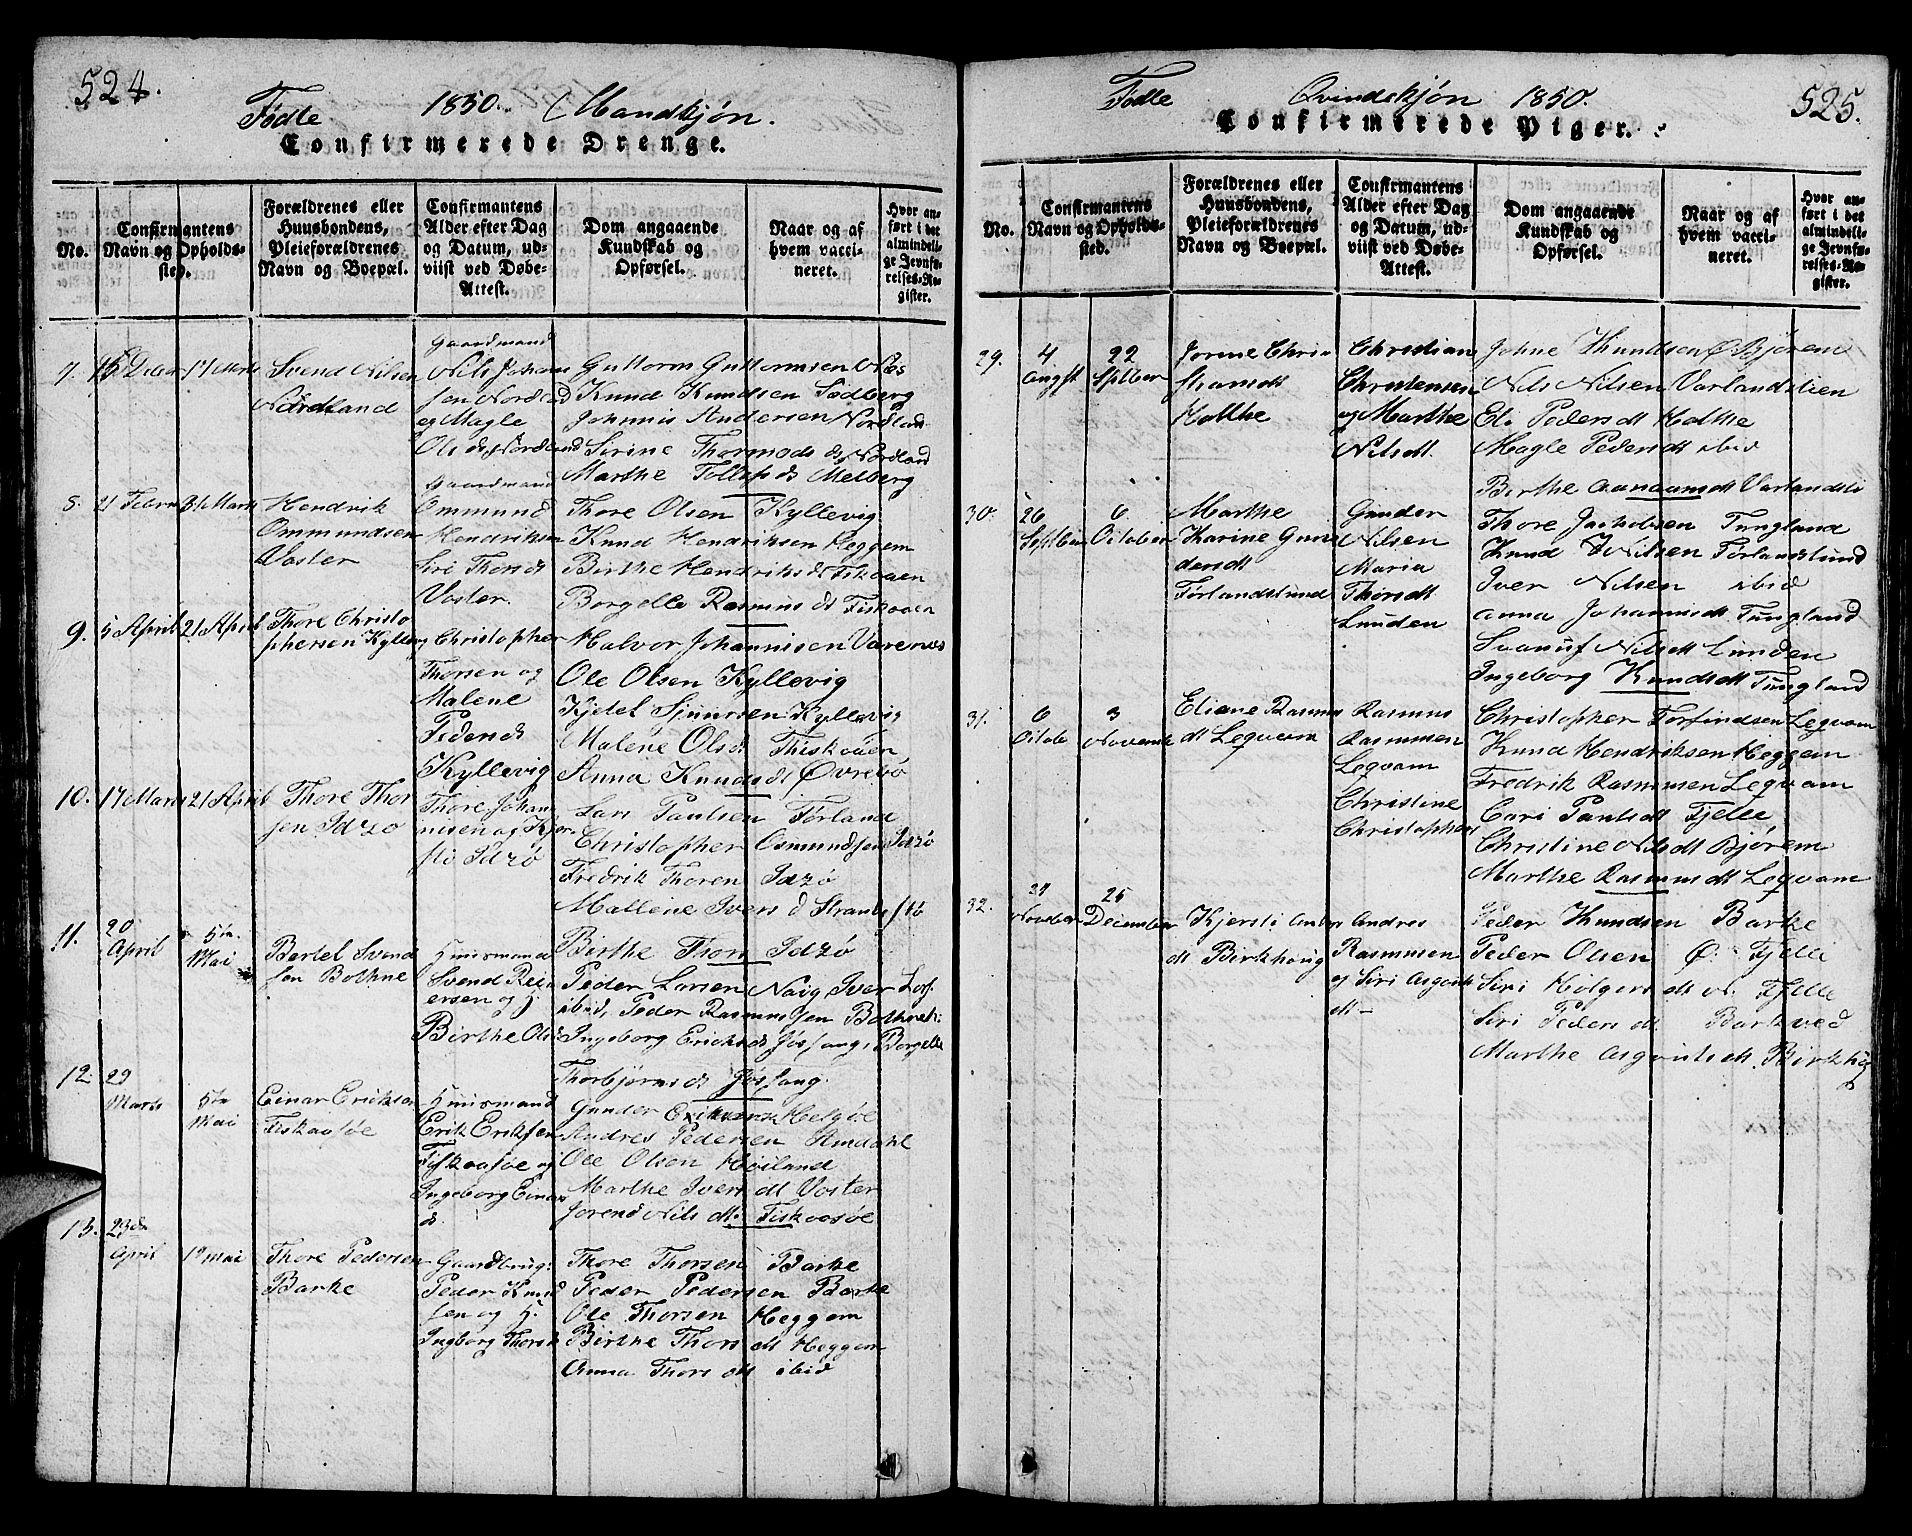 524.
Fødte 1850. Mandkjøn.
Confirmerede Drenge.
No.
Confirmantens Navn og Opholds-sted.
Forældrenes eller Huusbondens, Pleieforældrenes Navn og Boepæl.
Confirmantens Alder efter Dag og Datum, ud-viist ved Døbe-Attest.
Dom angaaende Kundskab og Opførsel.
Naar og af hvem vacci-neret.
Hvor an-ført i det almindeli-ge Jevnfø-relses-Re-gister.
7. 17 Marts Svend Nilsen
Nordland
Gaardmand
Nils Johan
sen Nordland
og Magle
Ols d. Nordland
Guttorm Guttormsen Næs
Knud Knudsen Sedberg
Johannis Andersen Nordland
Serine Thormods d. Nordland
Marthe Tollefs d. Melberg
8. 21 Febru 31 Marts Hendrik
Ommundsen
Voster
Gaardmand
Ommund
Hendriksen
Siri Thors d.
Voster.
Thore Olsen Kyllevig
Knud Hendriksen Heggem
Birthe Hendriks d. Fiskaaen
Borgelle Rasmus d. Fiskaaen
9. 5 April 21 April Thore Christo
phersen Kyllevig
Christopher
Thorsen og
Malene
Peders d.
Kyllevig
Halvor Johannisen Varenes
Ole Olsen Kyllevig
Kjetel Sjuursen Kyllevig
Malene Ols d. Fiskaaen
Anna Knuds d. Øvrebø
10. 17 Marts 21 April Thore Thor
sen Idzø
Thore Johan
nisen og Kjer
sti Idzø
Lars Paulsen Førland
Christopher Osmundsen Idzø
Fredrik Thoren Idzø
Mallene Ivers d. Strandstø
Birthe Thors Idzø
11. 20 April 5te Mai Bertel Svend
sen Bothne
Huusmand
Svend Rei
ersen og H.
Birthe Ols d.
Peder Larsen Naig Iver Lars
ibid, Peder Rasmussen Bothne
Ingeborg Eriks d. Jøssang, Borgelle
Thorbjørns d. Jøssang.
12. 29 Marts 5te Mai Einar Eriksen
Fiskaasøe
Huusmand
Erik Eriksen
Fiskaasøe og
Ingeborg Einar
d.
Gunder Helgøe
Andres Pedersen Amdahl
Ole Olsen Høiland
Marthe Ivers dt. Voster
Joren Nils dt. Fiskaasøe
13. 23de April 12 Mai Thore Pedersen
Barke
Gaardbrug:
Peder Knud
sen og H.
Ingborg Thors d.
Thore Thorsen Barke
Peder Pedersen Barke
Ole Thorsen Heggem
Birthe Thors dt Heggem
Anna Thors dt ibid
525.
Fødte Qvindekjøn 1850.
Confirmerede Piger.
No.
Confirmantens Navn og Opholds-sted.
Forældrenes eller Huusbondens, Pleieforældrenes Navn og Boepæl.
Confirmantens Alder efter Dag og Datum, ud-viist ved Døbe-Attest.
Dom angaaende Kundskab og Opførsel.
Naar og af hvem vacci-neret.
Hvor an-ført i det almindeli-ge Jevnfø-relses-Re-gister.
29. 4 August 22 Septber Jorine Chri
stiansdt
Holthe
Christian
Christensen
og Marthe
Nilsdt.
Johne Knudsen Ø Bjørem
Nils Nilsen Varlandslien
Eli Pedersdt Holthe
Magle Pedersdt ibid
Birthe Aanaunsdt Varlandsli
30. 26 Septber 6 October Marthe
Karine Gun
dersdt
Førlandslund
Gunder
Nilsen
Maria
Thorsdt
Lunden
Thore Jachobsen Tungland
Knud Nilsen Førlandslund
Iver Nilsen ibid
Anna Johannisdt Tungland
Svanuf Nilsdt Lunden
Ingeborg Knudsdt Tungland
31. 6 Octobe 3 Novembe Eliane Rasmus
dt Leqvam
Rasmus
Rasmusen
Leqvam
Christine
Christophers
Christopher Torfindsen Leqvam
Knud Hendriksen Heggem
Fredrik Rasmusen Leqvam
Cari Paulsdt Fjelle
Christine Nilsdt Bjørem
Marthe Rasmusdt Leqvam
32. Novber 25 December Kjersti Andrs
dt Birkhoug
Andres
Rasmusen
og Siri Asgouts
dt-
Peder Knudsen Barke
Peder Olsen Ø. Fjelle
Siri Holgers dt N. Fjelle
Siri Peders dt Barkved
Marthe Asgoutsdt. Birkhoug